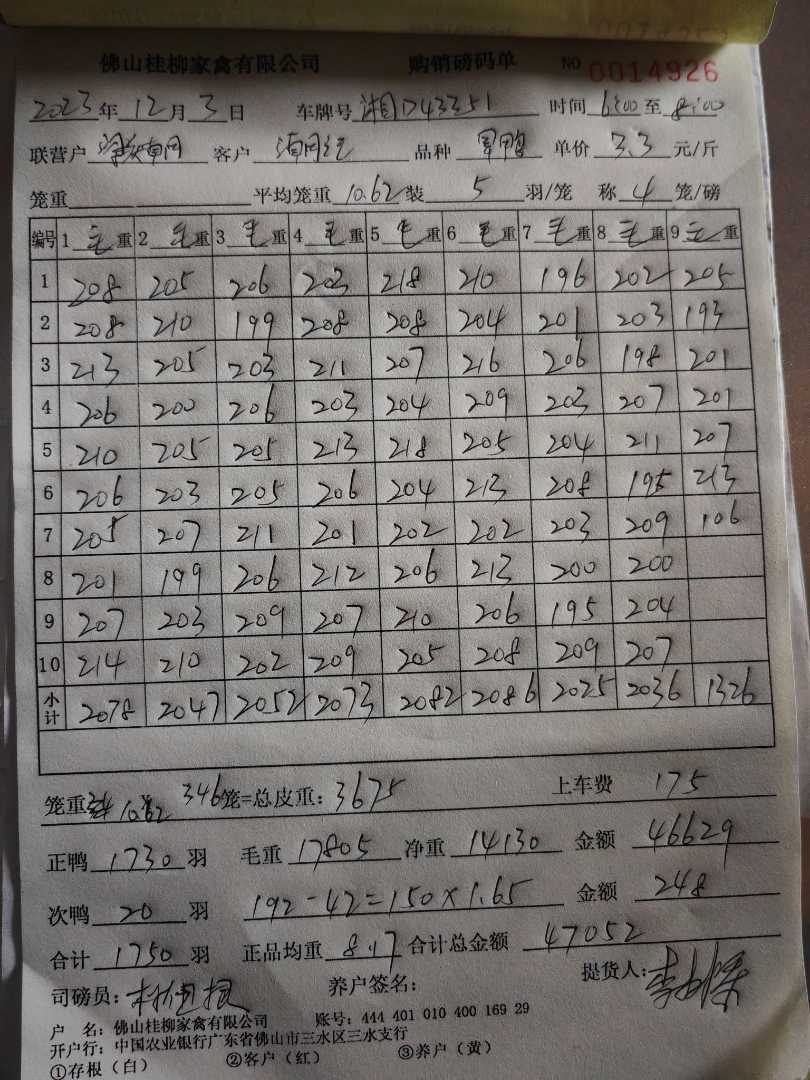 佛山桂柳家禽有限公司 购销磅码单 NO 0014926
2023年 12月 3日 车牌号 湘D43351 时间 6:00 至 8:00
联营户 客户 品种 单价 3.3 元/斤
笼重 平均笼重 10.62 装 5 羽/笼 称 4 笼/磅
编号 1 毛重 2 毛重 3 毛重 4 毛重 5 毛重 6 毛重 7 毛重 8 毛重 9 毛重
1 208 205 206 203 218 210 196 202 205
2 208 210 199 208 208 204 201 203 193
3 213 205 203 211 207 216 206 198 201
4 206 200 206 203 204 209 203 207 201
5 210 205 205 213 218 205 204 211 207
6 206 203 205 206 204 213 208 195 213
7 205 207 211 201 202 202 203 209 106
8 201 199 206 212 206 213 200 200
9 207 203 209 207 210 206 195 204
10 214 210 202 209 205 208 209 207
小计 2078 2047 2052 2073 2082 2086 2025 2036 1326
笼重 10.62 346笼=总皮重: 3675 上车费 175
正鸭 1730 羽 毛重 17805 净重 14130 金额 46629
次鸭 20 羽 192-42=150×1.65 金额 248
合计 1750 羽 正品均重 8.17 合计总金额 47052
司磅员: 养户签名: 提货人:
户 名: 佛山桂柳家禽有限公司 账号: 444 401 010 400 169 29
开户行: 中国农业银行广东省佛山市三水区三水支行
①存根（白） ②客户（红） ③养户（黄）